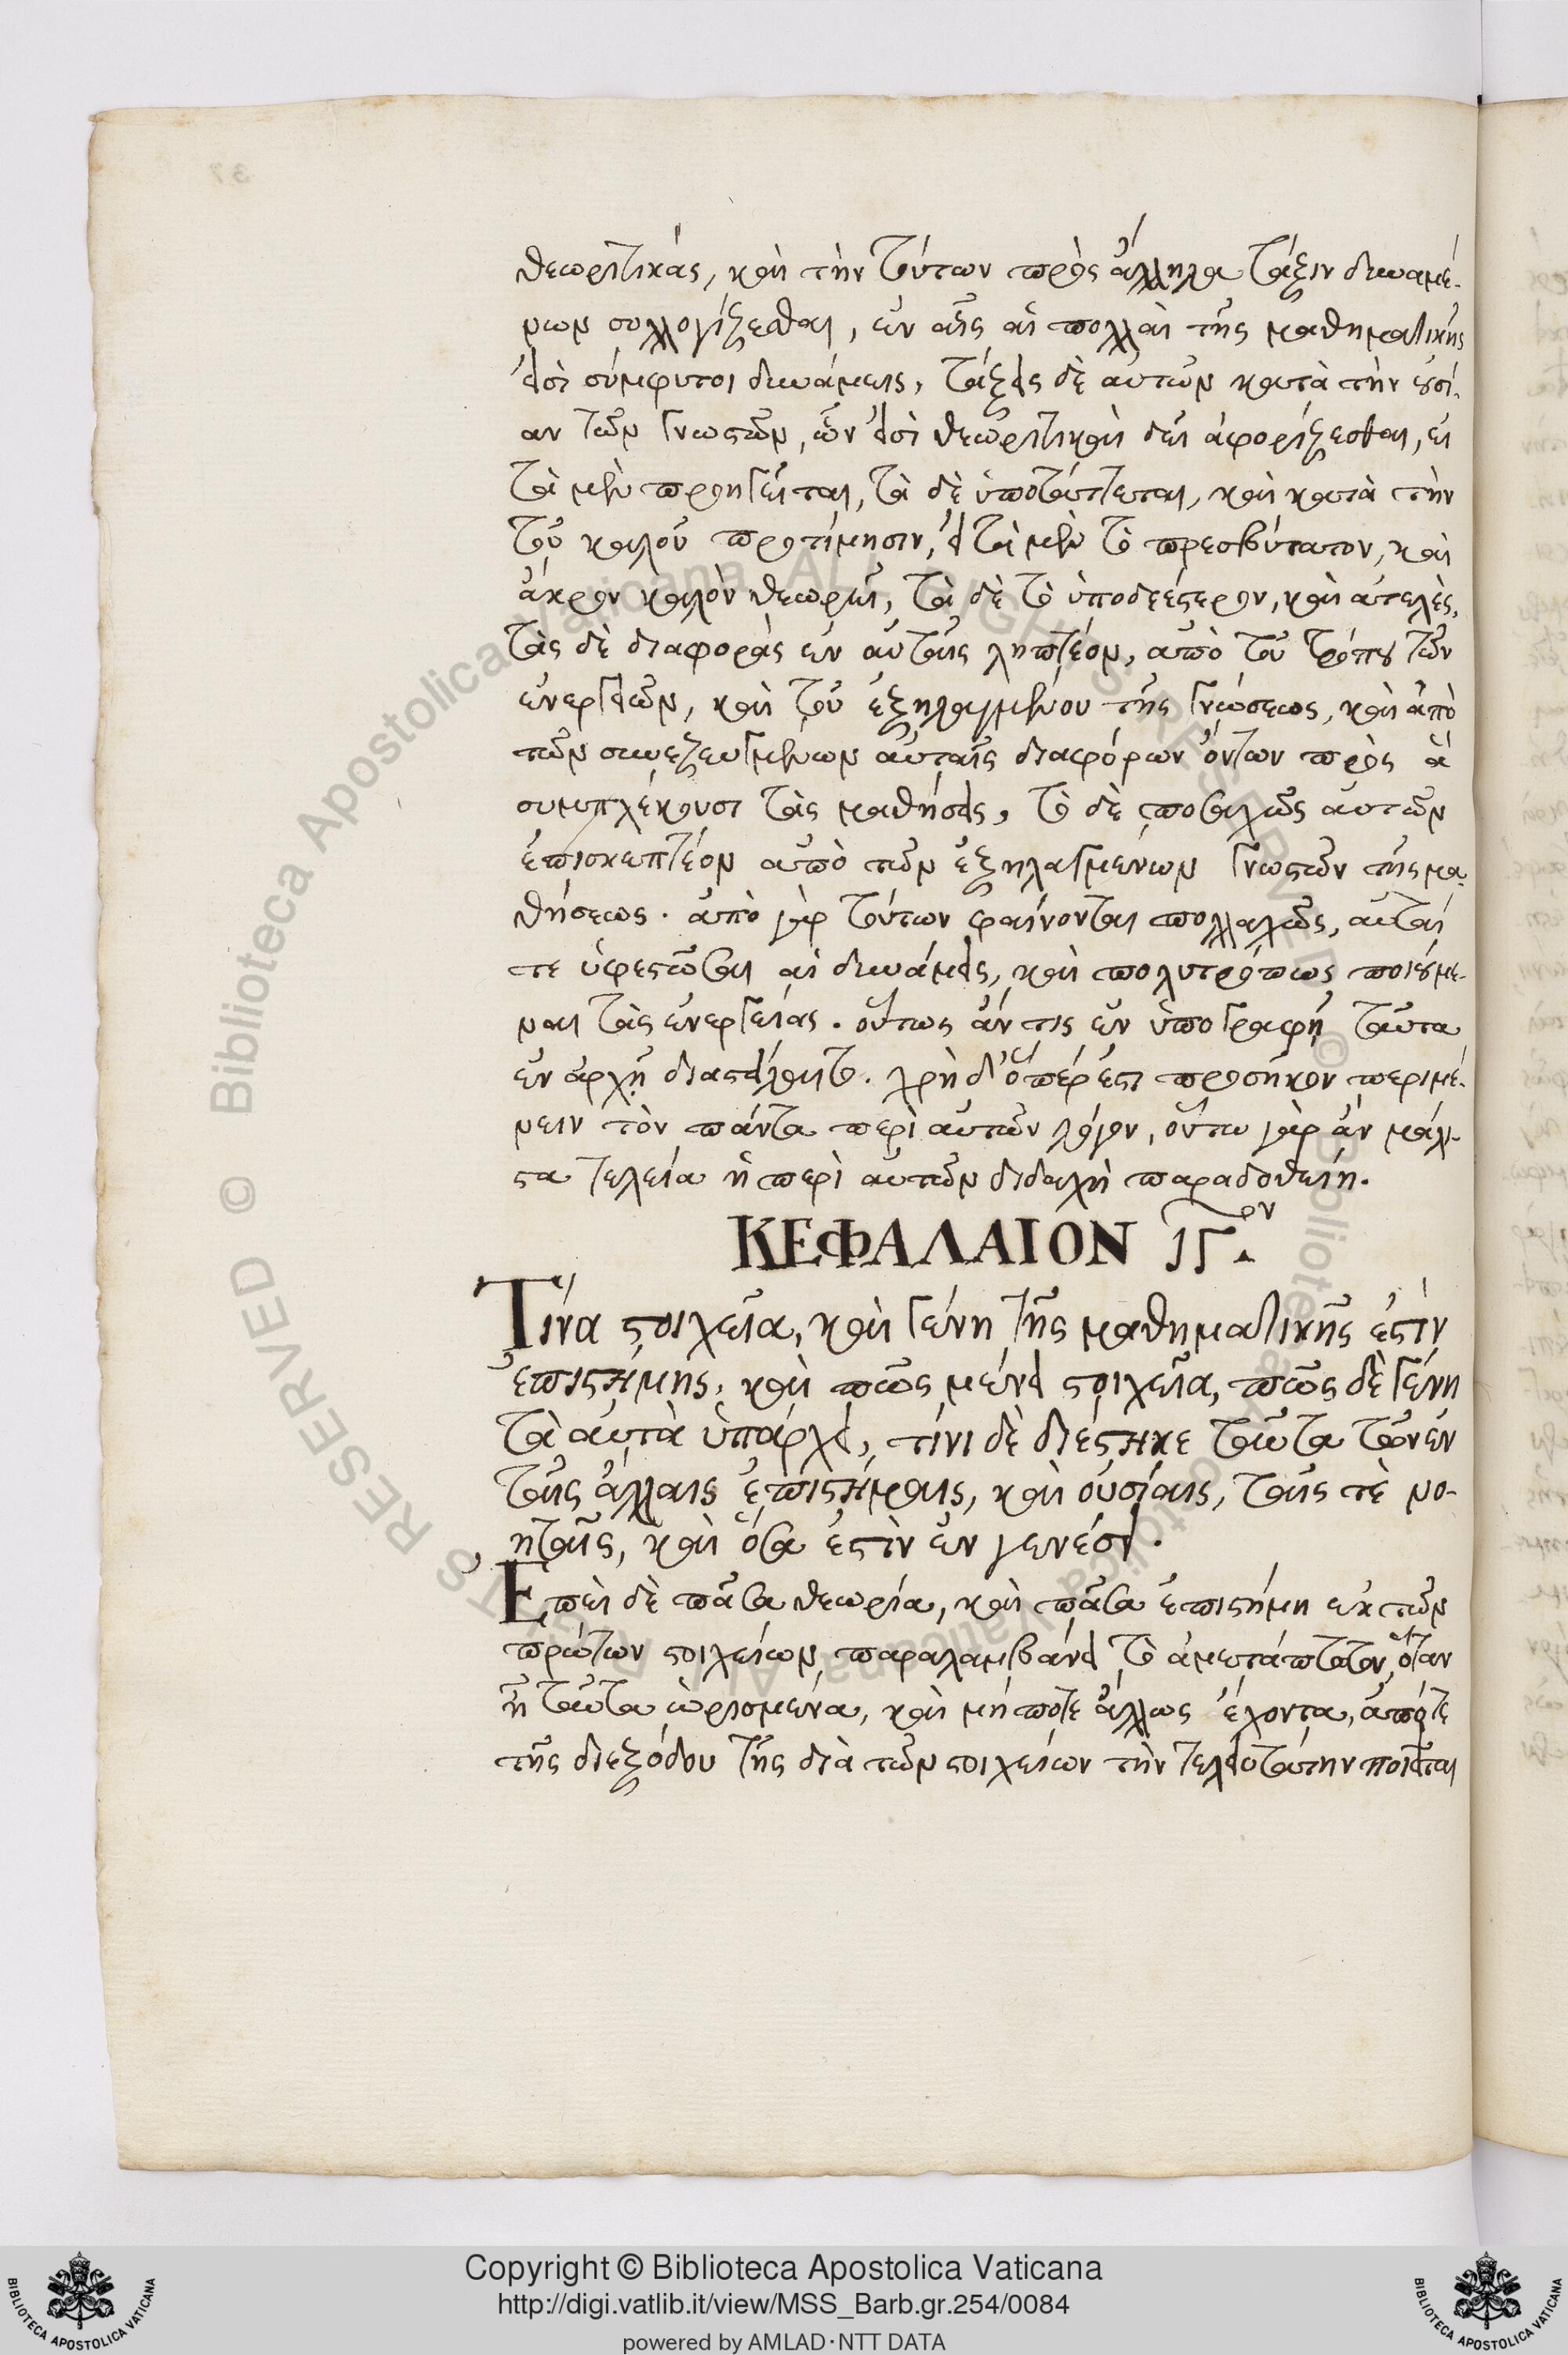 θεωρητικάς, καὶ τὴν τούτων πρὸς ἄλληλα τάξιν δυναμέ-
νων συλλογίζεσθαι, ἐν αἷς αἱ πολλαὶ τῆς μαθηματικῆς
εἰσὶ σύμφυτοι δυνάμεις, τάξεις δὲ αὐτῶν κατὰ τὴν οὐσί-
αν τῶν γνωστῶν, ὧν εἰσὶ θεωρητικαὶ δεῖ ἀφορίζεσθαι, εἰ
τὰ μὲν προηγεῖται, τὰ δὲ ὑποτάττεται, καὶ κατὰ τὴν
τοῦ καλοῦ προτίμησιν, εἰ τὰ μὲν τὸ πρεσβύτατον, καὶ
ἄκρον καλὸν θεωρεῖ, τὰ δὲ τὸ ὑποδεέστερον, καὶ ἀτελὲς,
τὰς δὲ διαφορὰς ἐν αὐταῖς ληπτέον, ἀπὸ τοῦ τρόπου τῶν
ἐνεργειῶν, καὶ τοῦ ἐξηλλαγμένου τῆς γνώσεως, καὶ ἀπὸ
τῶν συνεζευγμένων αὐταῖς διαφόρων ὄντων πρὸς ἃ
συμπλέκουσι τὰς μαθήσεις, τὸ δὲ ποσαχῶς αὐτῶν
ἐπισκεπτέον ἀπὸ τῶν ἐξηλαγμένων γνωστῶν τῆς μα-
θήσεως. ἀπὸ γὰρ τούτων φαίνονται πολλαχῶς, αὗταί
τε ὑφεστῶσαι αἱ δυνάμεις, καὶ πολυτρόπως ποιούμε-
ναι τὰς ἐνεργείας. οὕτως ἄν τις ἐν ὑπογραφῇ ταῦτα
ἐν ἀρχῇ διαστείλαιτο. χρὴ δ' ὅπερ ἐστι προσῆκον περιμέ-
νειν τὸν πάντα περὶ αὐτῶν λόγον, οὕτω γὰρ ἂν μάλι-
στα τελεία ἡ περὶ αὐτῶν διδαχὴ παραδοθείη.
ΚΕΦΑΛΑΙΟΝ ιγ.ον
Τίνα στοιχεῖα, καὶ γένη τῆς μαθηματικῆς ἐστὶν
ἐπιστήμης, καὶ πῶς μένει στοιχεῖα, πῶς δὲ γένη
τὰ αὐτὰ ὑπάρχει, τίνι δὲ διέστηκε ταῦτα τῶν ἐν
ταῖς ἄλλαις ἐπιστήμαις, καὶ οὐσίαις, ταῖς τὲ νο-
ηταῖς, καὶ ὅσα ἐστὶν ἐν γενέσει.
Ἐπεὶ δὲ πᾶσα θεωρία, καὶ πᾶσα ἐπιστήμη ἐκ τῶν
πρώτων στοιχείων παραλαμβάνει τὸ ἀμετάπτωτον, ὅταν
ᾖ ταῦτα ὡρισμένα, καὶ μήποτε ἄλλως ἔχοντα, ἀπό τε
τῆς διεξόδου τῆς διὰ τῶν στοιχείων τὴν τελειοτάτην ποιεῖται
Copyright © Biblioteca Apostolica Vaticana
http://digi.vatlib.it/view/MSS_Barb.gr.254/0084
powered by AMLAD·NTT DATA